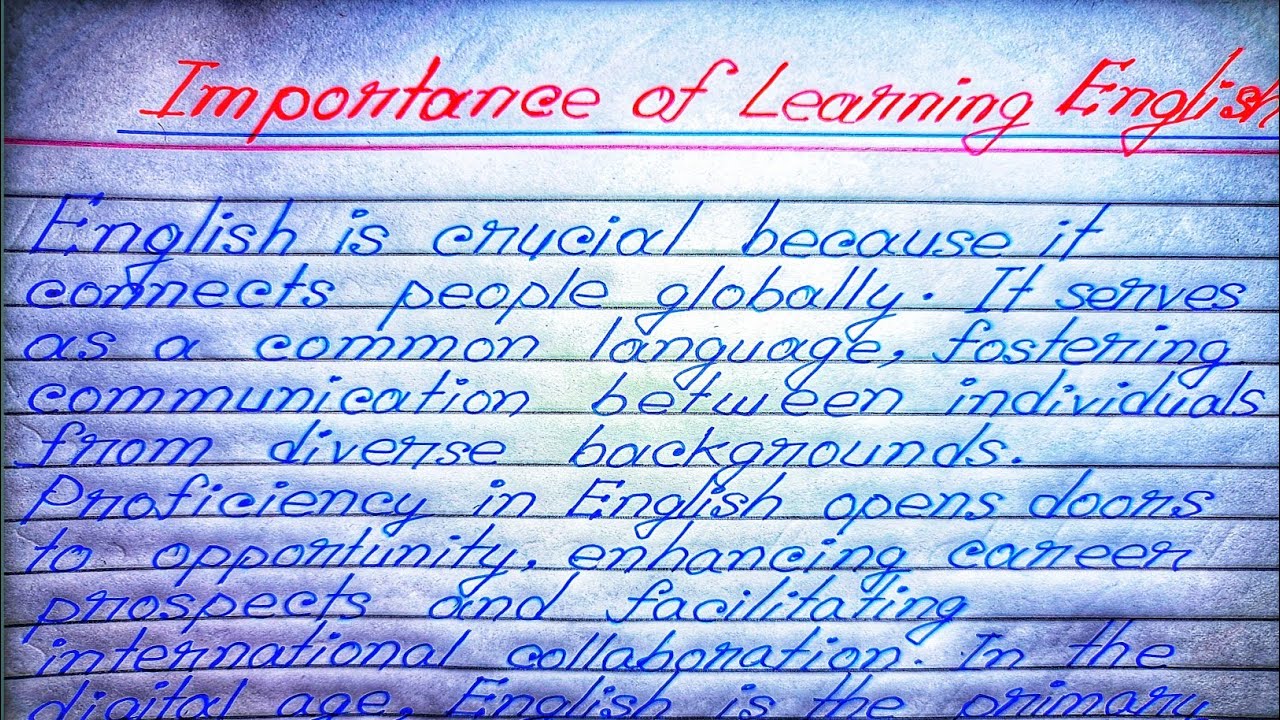 Importance of Learning English
English is crucial because it
connects people globally. It serves
as a common language, fostering
communication between individuals
from diverse backgrounds.
Proficiency in English opens doors
to opportunity, enhancing career
prospects and facilitating
international collaboration. In the
digital age, English is the primary